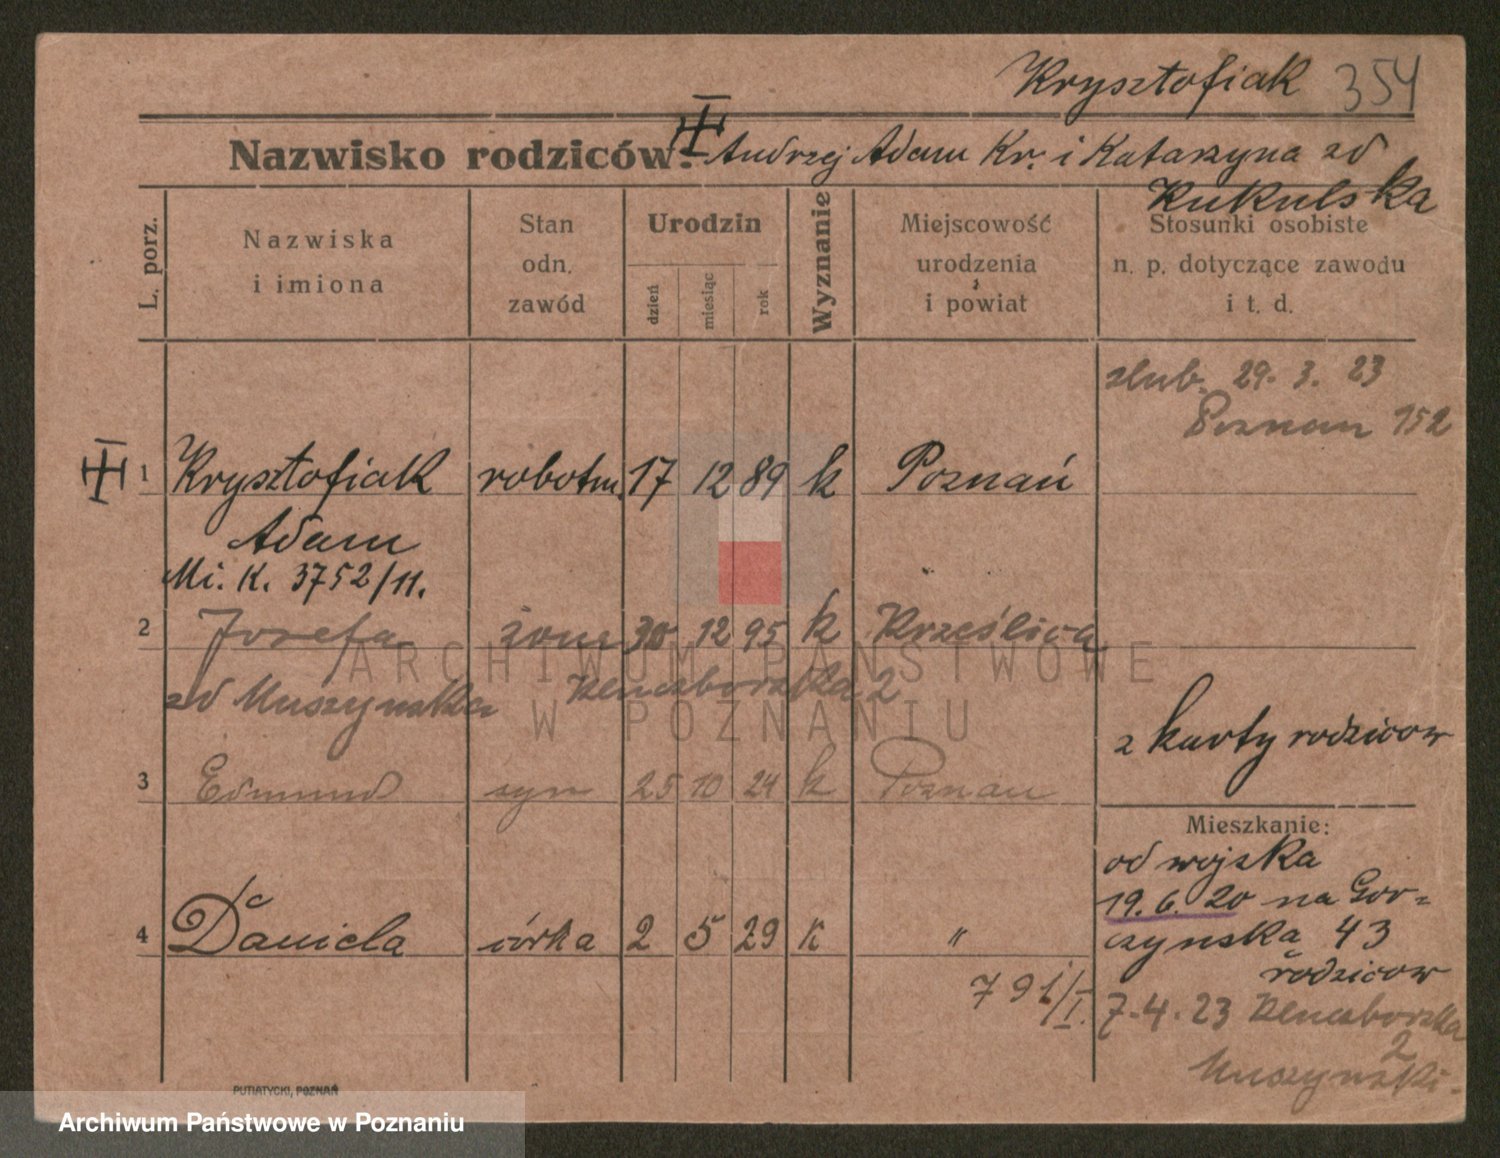 Krysztofiak 354
Nazwisko rodziców: Andrzej Adam Kr. i Katarzyna zd
Kukulska
L. porz.
Nazwiska
i imiona
Stan
odn.
zawód
Urodzin
dzień
miesiąc
rok
Wyznanie
Miejscowość
urodzenia
i powiat
Stosunki osobiste
n. p. dotyczące zawodu
i t. d.
ślub. 29. 3. 23
Poznan 152
1 Krysztofiak robotn. 17 12 89 k Poznań
Adam
Mi. K. 3752/11.
2 Józefa żona 30 12 95 k Krześlica
zd Muszynska Kluczborska 2
z karty rodzicow
3 Edmund syn 25 10 24 k Poznan
4 Daniela córka 2 5 29 k "
791/I.
Mieszkanie:
od wojska
19. 6. 20 na Gor=
czynska 43
rodzicow
7. 4. 23 Kluczborska
2
Muszynski.
PUTIATYCKI, POZNAŃ
ARCHIWUM PAŃSTWOWE
W POZNANIU
Archiwum Państwowe w Poznaniu